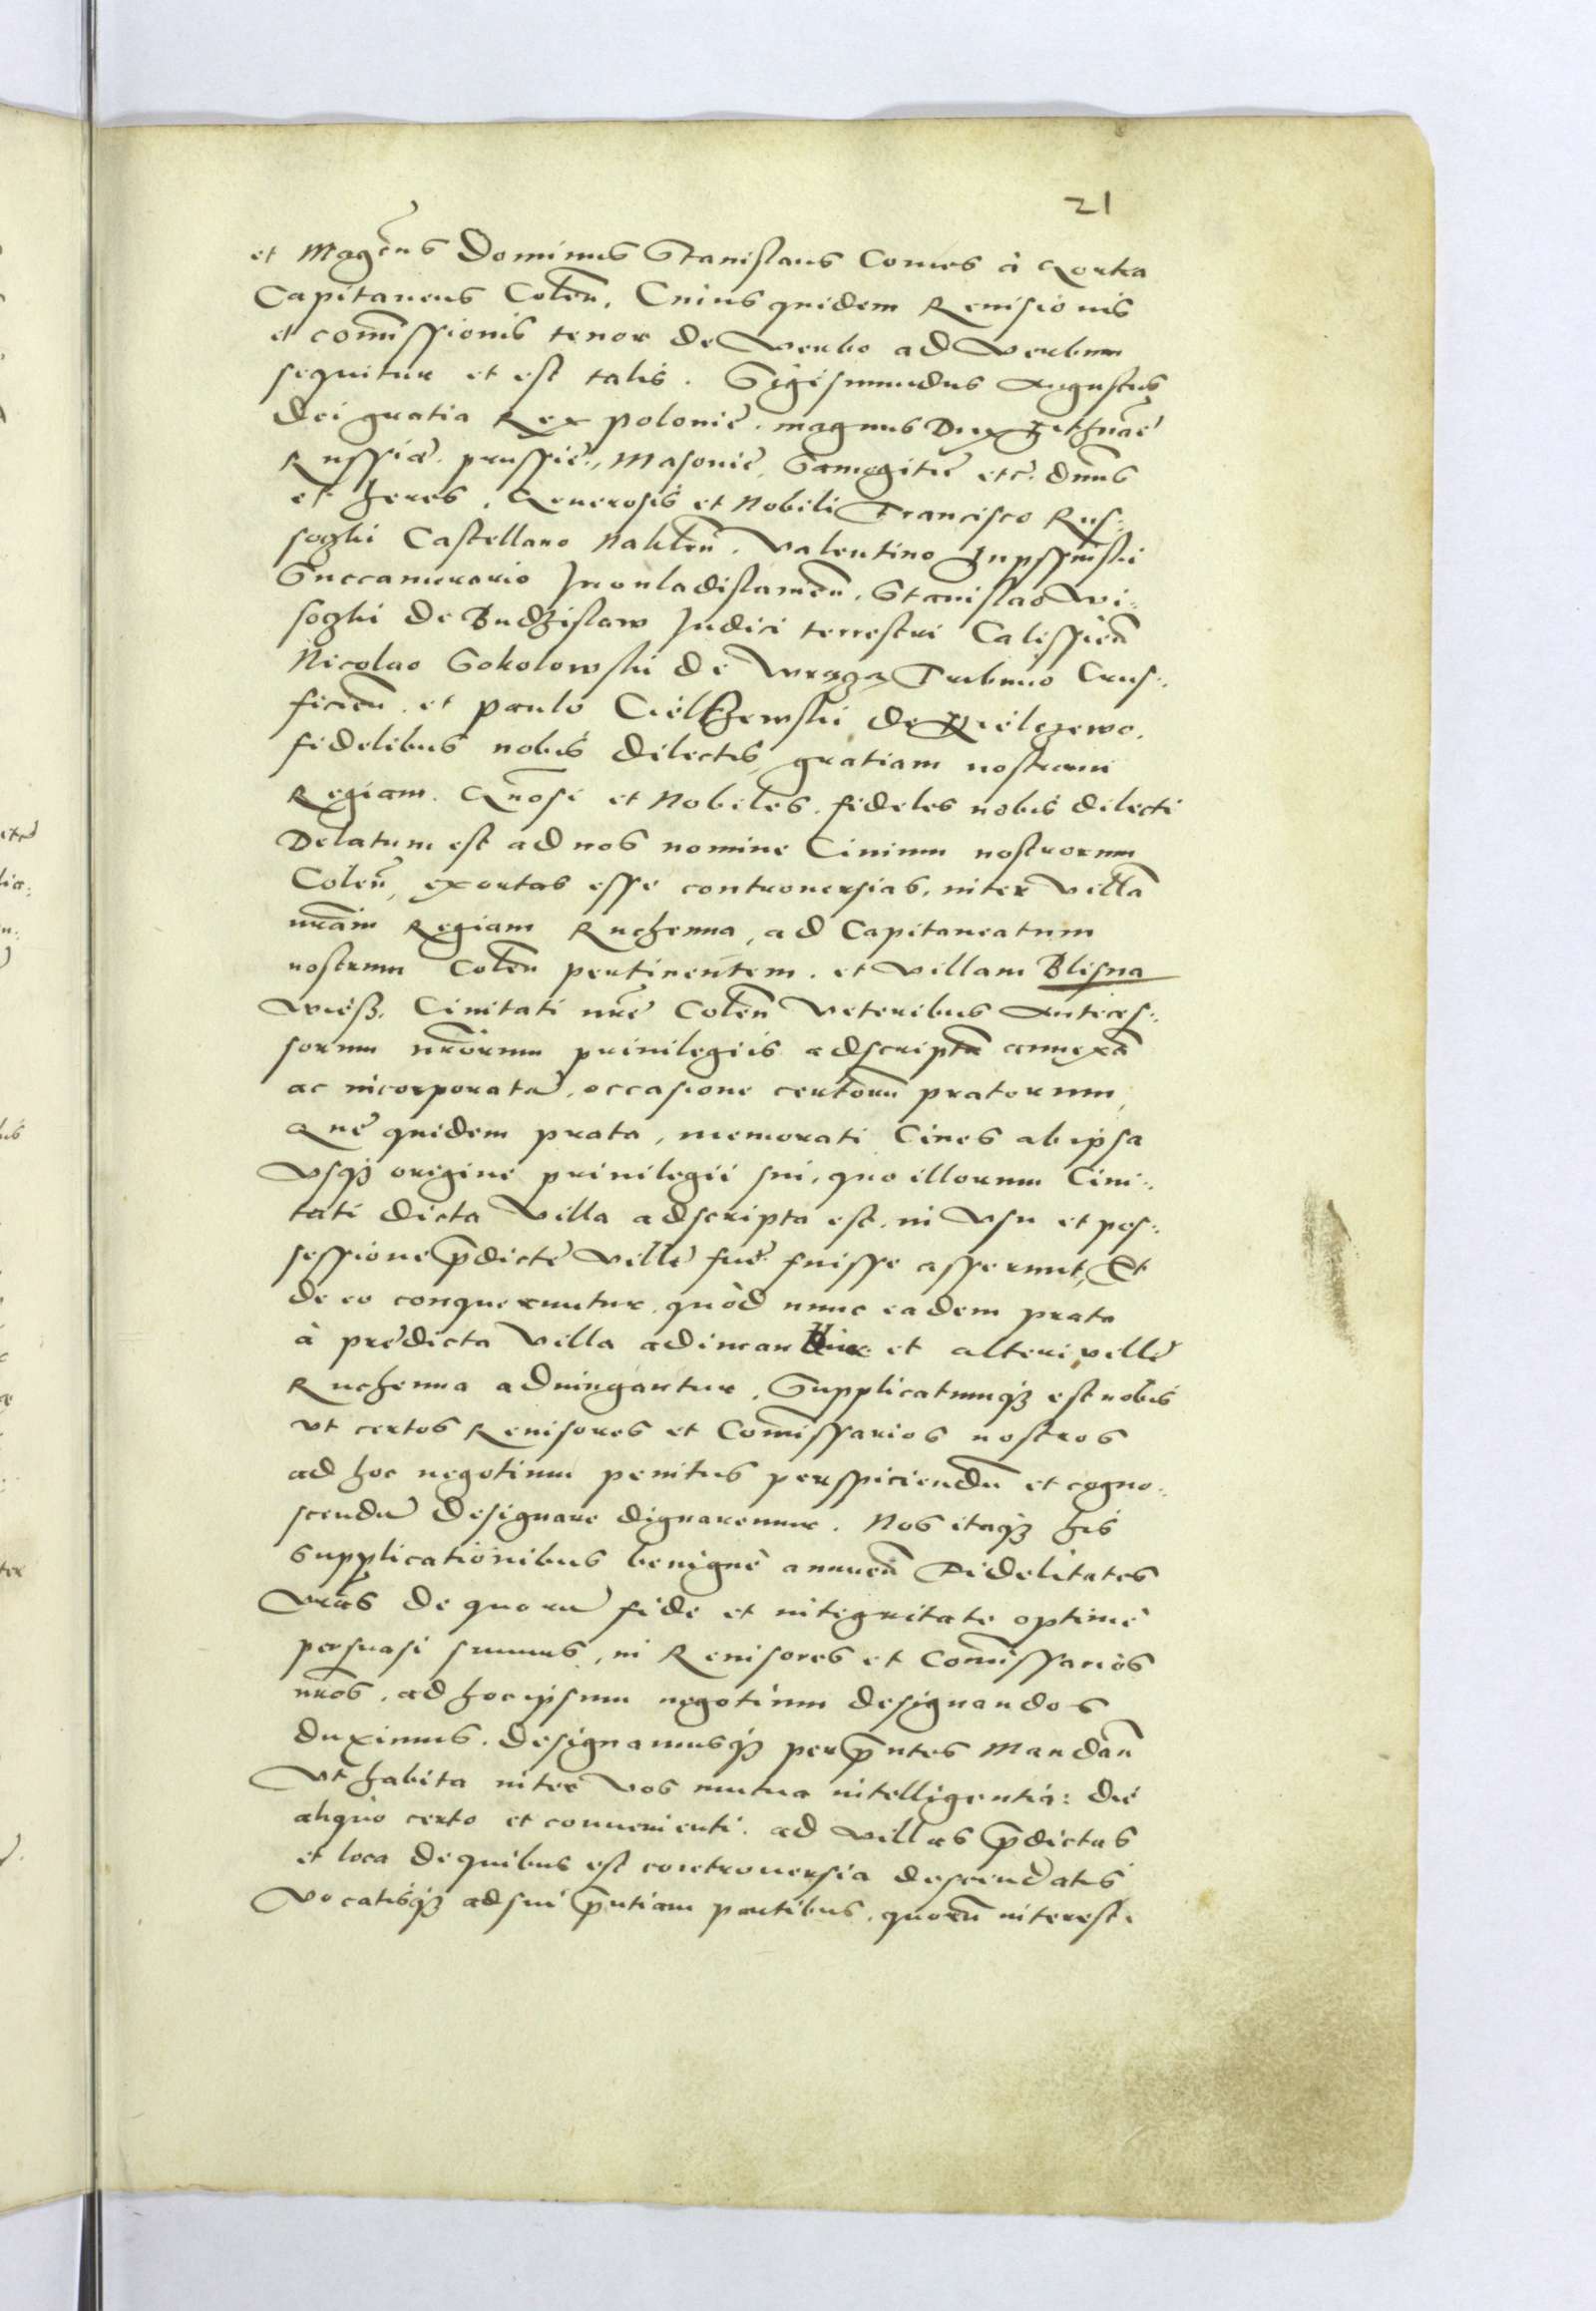 21
et Magcus Dominus Stanislaus Comes à Gorka
Capitaneus Colen. Cuius quidem Reuisionis
et comissionis tenor de Verbo ad Verbum
sequitur et est talis. Sigismundus Augustus
dei gratia Rex Polonie. magnus Dux Lithuae
Russiae. prussie, Masouie, Samogitie etc. dnus
et heres. Generosis et Nobili Francisco Rus:
soczki Castellano Naklen. Valentino
Succamerario Junouladislauien. Stanislao Wi:
soczki de Budzislaw Judici terrestri Calissien
Nicolao Sokolowski de Wrzaza Tribuno Crus:
ficien. et paulo Cielzewski de Kielczewo.
fidelibus nobis dilectis, gratiam nostram
Regiam. Gnosi et Nobiles. fideles nobis dilecti
Delatum est ad nos nomine Ciuium nostrorum
Colen, exortas esse controuersias, inter Villa
nram Regiam Ruchenna, ad Capitaneatum
nostrum Colen pertinentem. et villam Blisna
Wiesz. Ciuitati nre Colen Veteribus Anteces:
sorum nrorum priuilegiis adscripta annexa
ac incorporata, occasione certoru pratorum,
Que quidem prata, memorati Ciues ab ipsa
Vsqz origine priuilegii sui, quo illorum Ciui:
tati dicta Villa adscripta est, in Vsu et pos:
sessione pdicte Ville sue fuisse asserunt, Et
de eo conqueruntur. quòd nunc eadem prata
à predicta Villa adimantur et alteri ville
Ruchenna adiungantur. Supplicatumqz est nobis
vt certos Reuisores et Comissarios nostros
ad hoc negotium penitus perspiciendu et cogno:
scendu designare dignaremur. Nos itaqz his
supplicationibus benignè annuen Fidelitates
Vras de quoru fide et integritate optimè
persuasi sumus, in Reuisores et Comissarios
nros, ad hoc ipsum negotium designandos
duximus. designamusqz per pntes Mandan
Vt habita inter Vos mutua intelligentia: die
aliquo certo et conuenienti. ad villas pdictas
et loca de quibus est controuersia descendatis
Vocatisqz ad sui pntiam partibus. quoru interest.